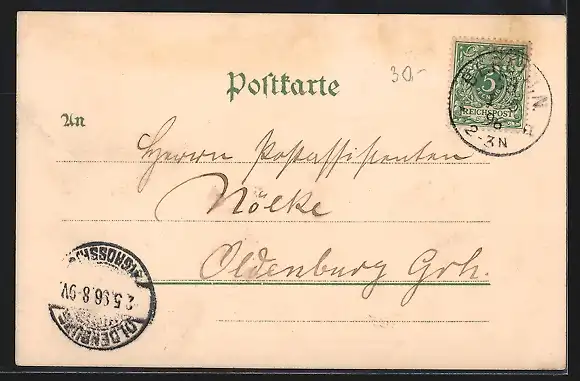 30.-
5
REICHSPOST
96
2-3N
Postkarte
An
Herrn Postassistenten
Nölke
Oldenburg Grh.
2.5.96.8-9V.
OLDENBURG